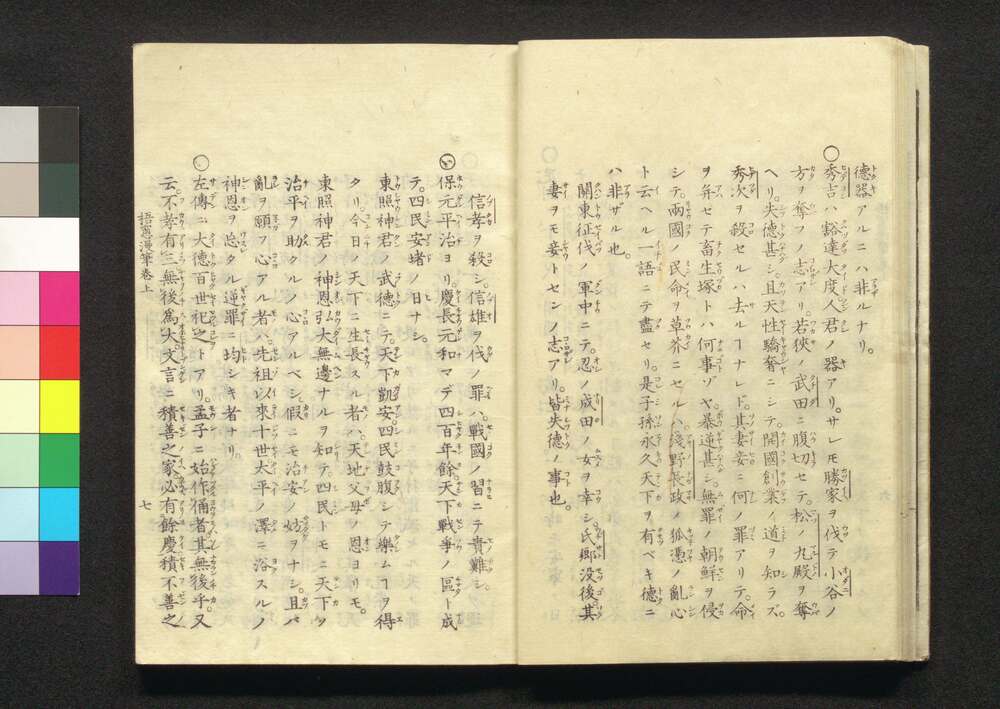 德器アルニハ非ルナリ。
○秀吉ハ豁達大度人君ノ器アリ。サレ𪜈勝家ヲ伐テ小谷ノ
方ヲ奪フノ志アリ。若狹ノ武田ニ腹切セテ。松ノ丸殿ヲ奪
ヘリ。失德甚シ。且天性驕奢ニシテ。開國創業ノ道ヲ知ラズ。
秀次ヲ殺セルハ去ルヿナレド。其妻妾ニ何ノ罪アリテ。命
ヲ幷セテ畜生塚トハ何事ゾヤ。暴逆甚シ。無罪ノ朝鮮ヲ侵
シテ。兩國ノ民命ヲ草芥ニセルハ淺野長政ノ狐憑ノ亂心
ト云ヘル一語ニテ盡セリ。是子孫永久天下ヲ有ベキ德ニ
ハ非ザル也。
關東征伐ノ軍中ニテ。忍ノ成田ノ女ヲ幸シ。氏鄕没後其
妻ヲモ妾トセンノ志アリ。皆失德ノ事也。
信孝ヲ殺シ。信雄ヲ伐ノ罪ハ。戰國ノ習ニテ責難シ。
○保元平治ヨリ。慶長元和マデ四百年餘。天下戰爭ノ區ト成
テ。四民安堵ノ日ナシ。
東照神君ノ武德ニテ。天下凱安。四民鼓腹シテ樂ムヿヲ得
タリ今日ノ天下ニ生長スル者ハ。天地父母ノ恩ヨリモ。
東照神君ノ神恩弘大無邊ナルヲ知テ。四民トモニ天下ノ
治平ヲ助ルノ心アルベシ。假ニモ治安ノ妨ヲナシ。且ハ
亂ヲ願フ心アル者ハ。先祖以來十世太平ノ澤ニ浴スルノ
神恩ヲ忘タル逆罪ニ均シキ者ナリ。
○左傳ニ大德百世祀之トアリ。孟子ニ始作俑者其無後乎又
云。不孝有三無後爲大。文言ニ積善之家必有餘慶積不善之
梧窻漫筆卷上
七